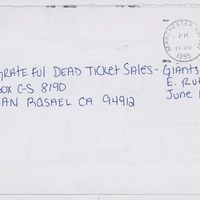 MANCHESTER
PM
1995
GRATEFUL DEAD TICKET SALES - GIANTS
BOX C-S 8190 E. RUT
SAN RAFAEL CA 94912 JUNE 1